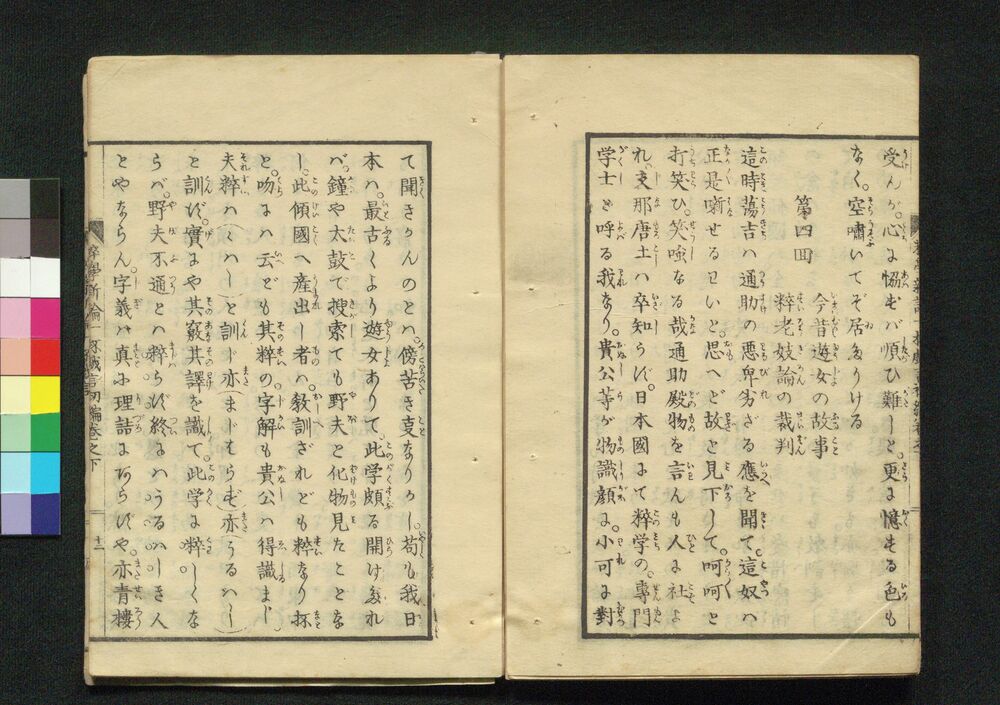 受んが。心に恊ねば順ひ難しと。更に憶する色も
なく。空嘯いてぞ居たりける
第四回
今昔遊女の故事
粹老妓論の裁判
這時蕩吉ハ通助の悪卑劣ざる應を聞て。這奴ハ
正是噺せるワいと。思へど故と見下して。呵呵と
打笑ひ。笑啌なる哉通助殿物を言んも人に社よ
れ。支那唐土ハ卒知らず。日本國にて粹学の。専門
学士と呼る我なり。貴公等が物識顔に。小可に對
て聞きかんのとハ。傍苦き叓なりかし。苟も我日
本ハ。最古くより遊女ありて。此学頗る開けたれ
バ。鐘や太鼓で搜索ても野夫と化物見たことな
し。此傾國へ産出し者ハ。敎訓ざれども粹なり抔
と吻にハ云ども其粹の字解も貴公ハ得識まじ
夫粹ハ(ハし)と訓ず亦(まじはらず)亦うるハし)
と訓ず。實にや其竅其譯を識て。此学に粹しくな
らバ。野夫不通とハ粹らず終にハうるハしき人
とやならん。字義は真に理詰にあらずや。亦青樓
粹學新論
初編卷之下
十二